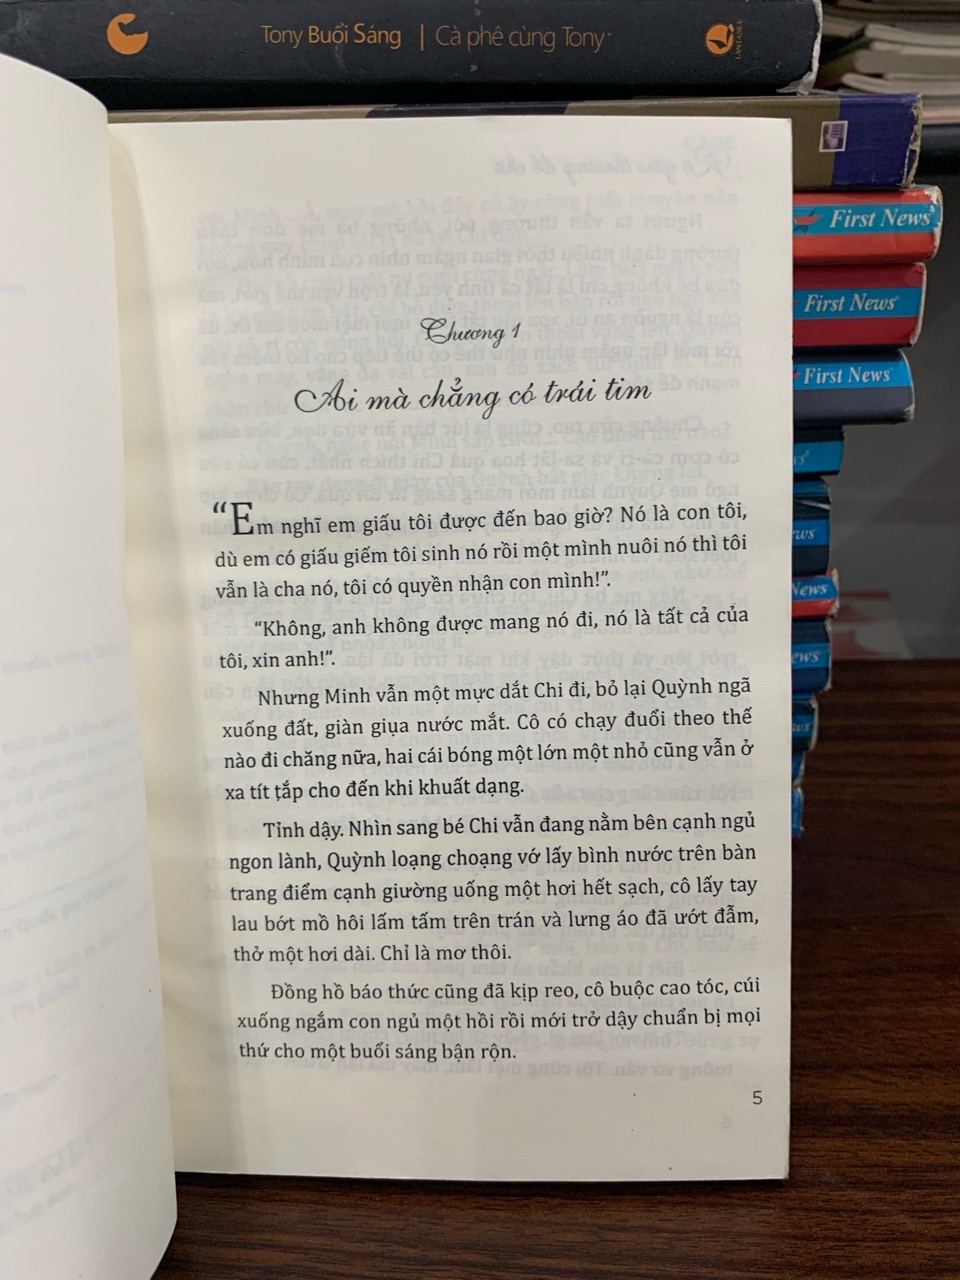 Tony Buổi Sáng | Cà phê cùng Tony
First News
First News
First News
ws
ws
News
ews
ws
Chương 1
Ai mà chẳng có trái tim
“Em nghĩ em giấu tôi được đến bao giờ? Nó là con tôi,
dù em có giấu giếm tôi sinh nó rồi một mình nuôi nó thì tôi
vẫn là cha nó, tôi có quyền nhận con mình!”.
“Không, anh không được mang nó đi, nó là tất cả của
tôi, xin anh!”.
Nhưng Minh vẫn một mực dắt Chi đi, bỏ lại Quỳnh ngã
xuống đất, giàn giụa nước mắt. Cô có chạy đuổi theo thế
nào đi chăng nữa, hai cái bóng một lớn một nhỏ cũng vẫn ở
xa tít tắp cho đến khi khuất dạng.
Tỉnh dậy. Nhìn sang bé Chi vẫn đang nằm bên cạnh ngủ
ngon lành, Quỳnh loạng choạng vớ lấy bình nước trên bàn
trang điểm cạnh giường uống một hơi hết sạch, cô lấy tay
lau bớt mồ hôi lấm tấm trên trán và lưng áo đã ướt đẫm,
thở một hơi dài. Chỉ là mơ thôi.
Đồng hồ báo thức cũng đã kịp reo, cô buộc cao tóc, cúi
xuống ngắm con ngủ một hồi rồi mới trở dậy chuẩn bị mọi
thứ cho một buổi sáng bận rộn.
5